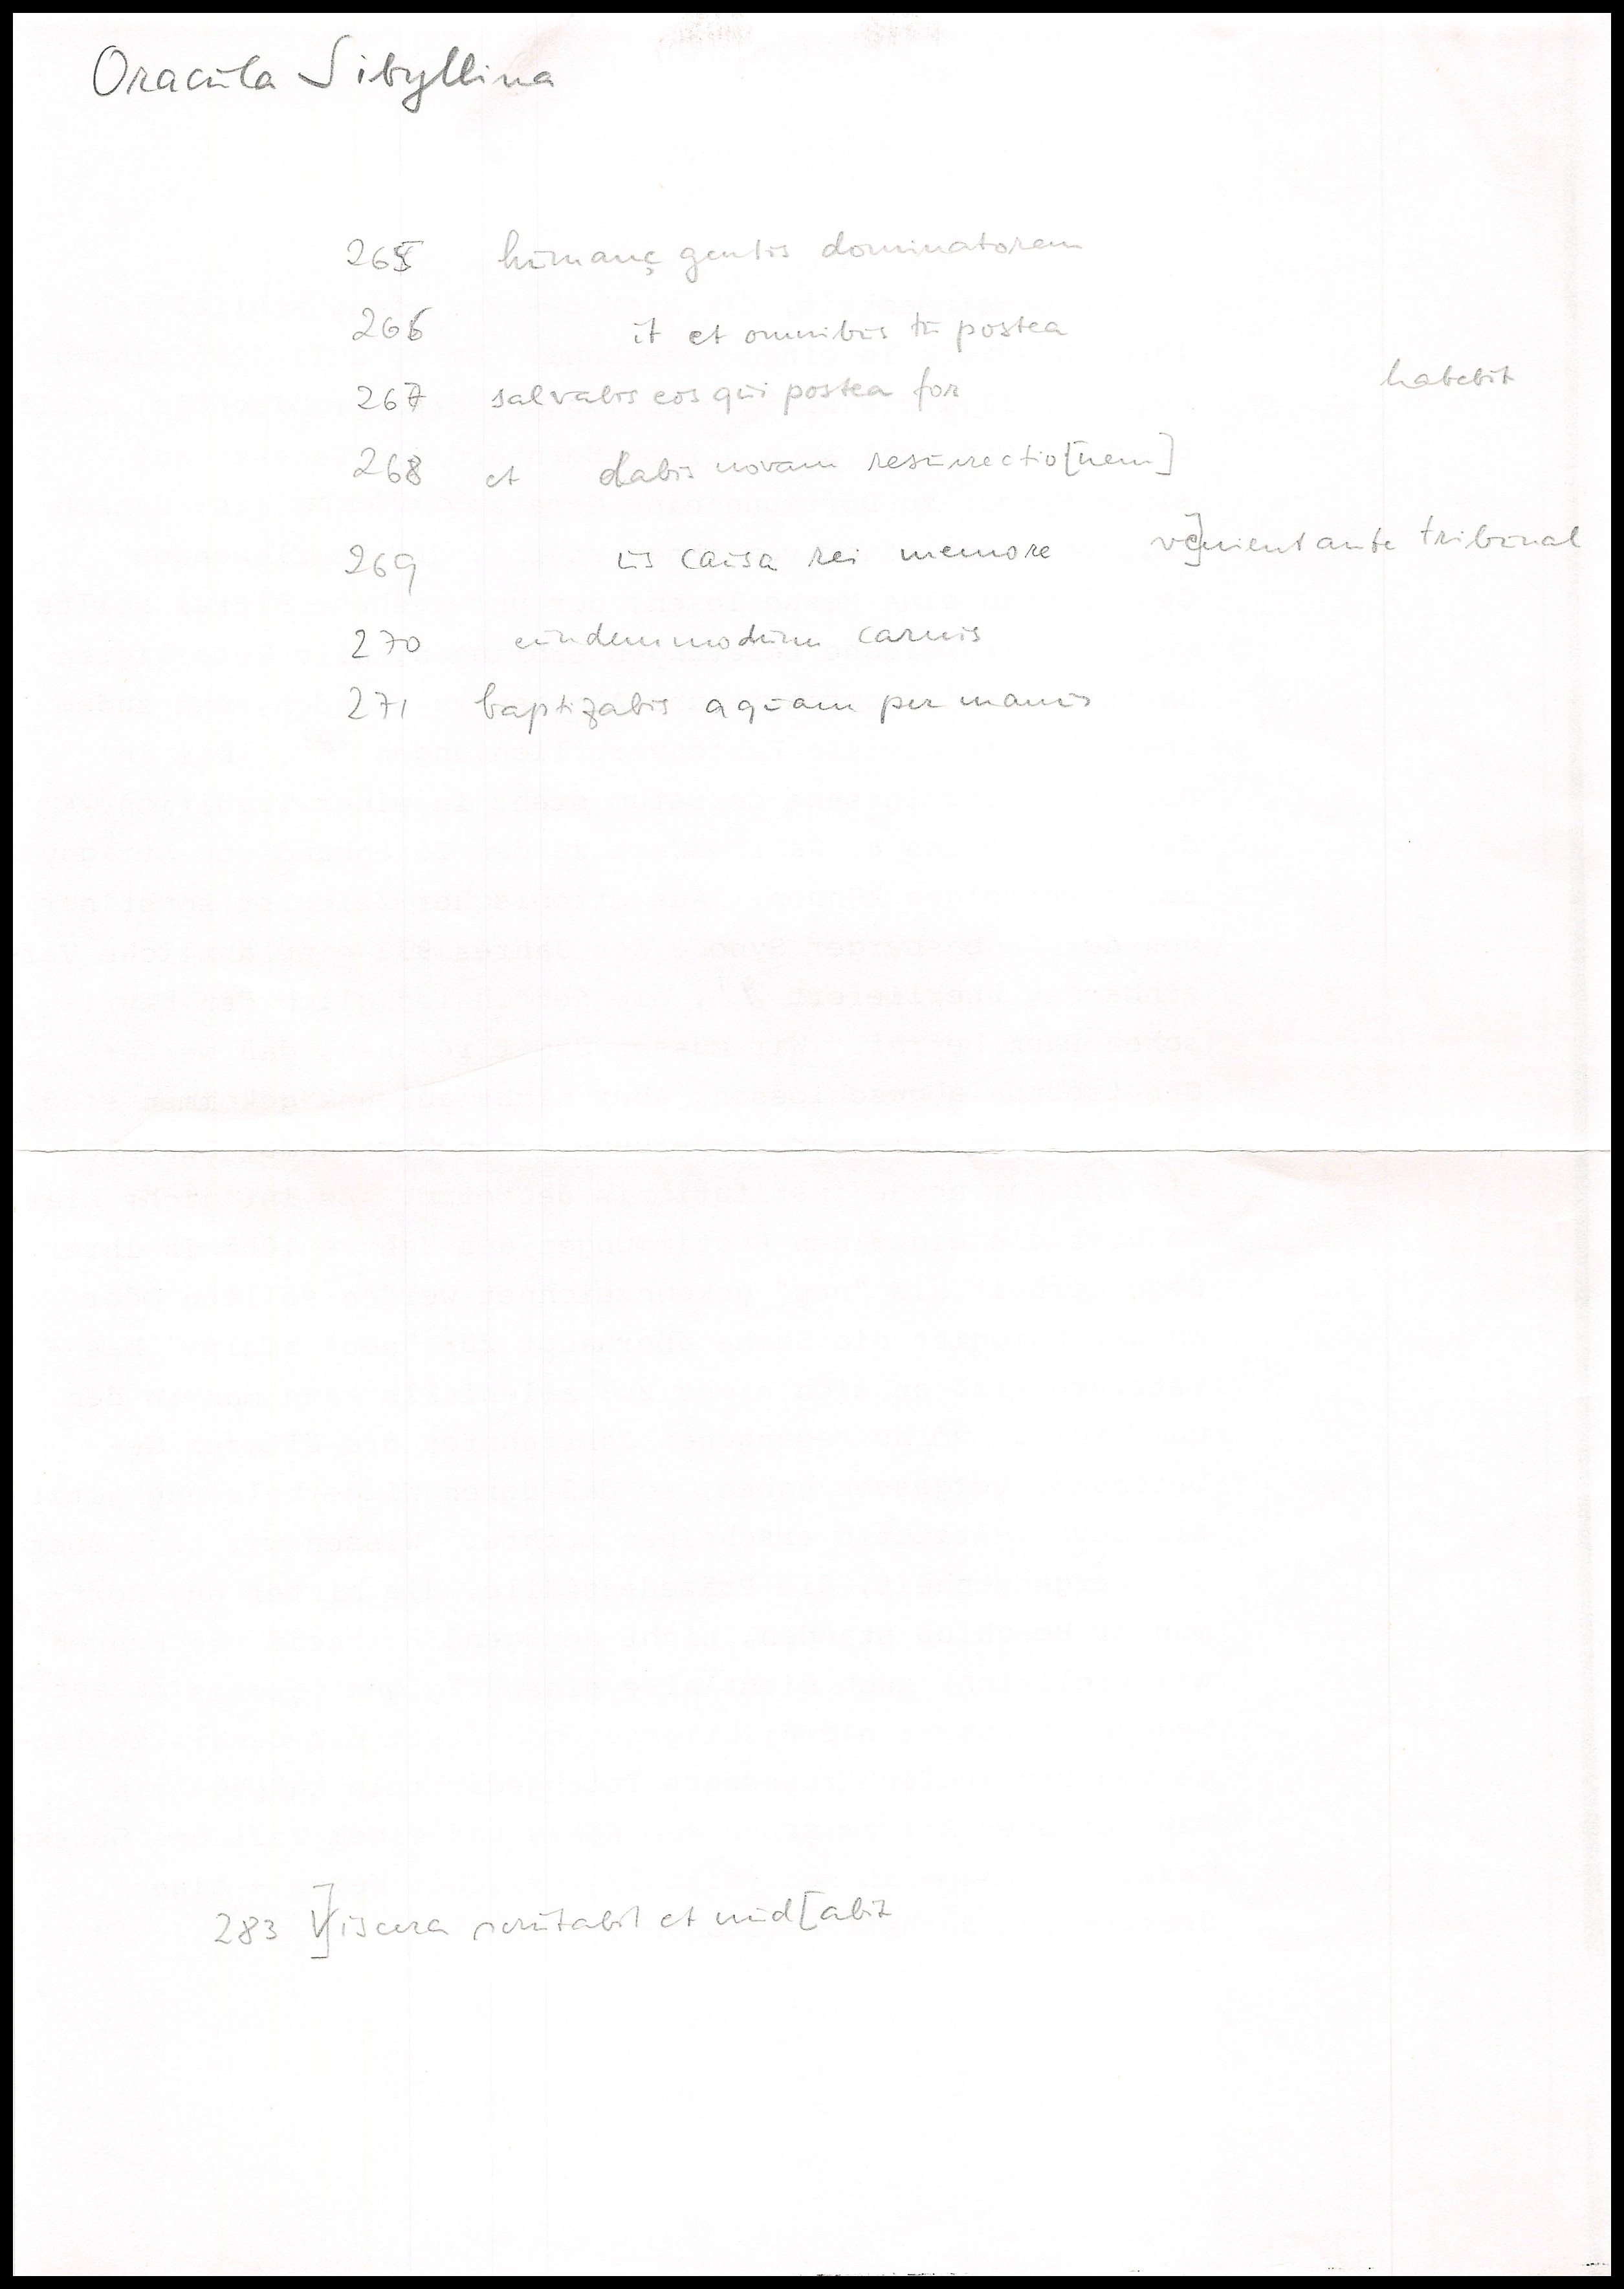 Oracula Sibyllina
265 humanę gentis dominatorem
266 it et omnibus tu postea
267 salvabis eos qui postea for habebit
268 et dabis novam resurrectio[nem]
269 us causa rei memore ve]nient ante tribunal
270 eundem modum carnis
271 baptizabis aquam per manus
283 V]iscera scrutabit et nud[abit